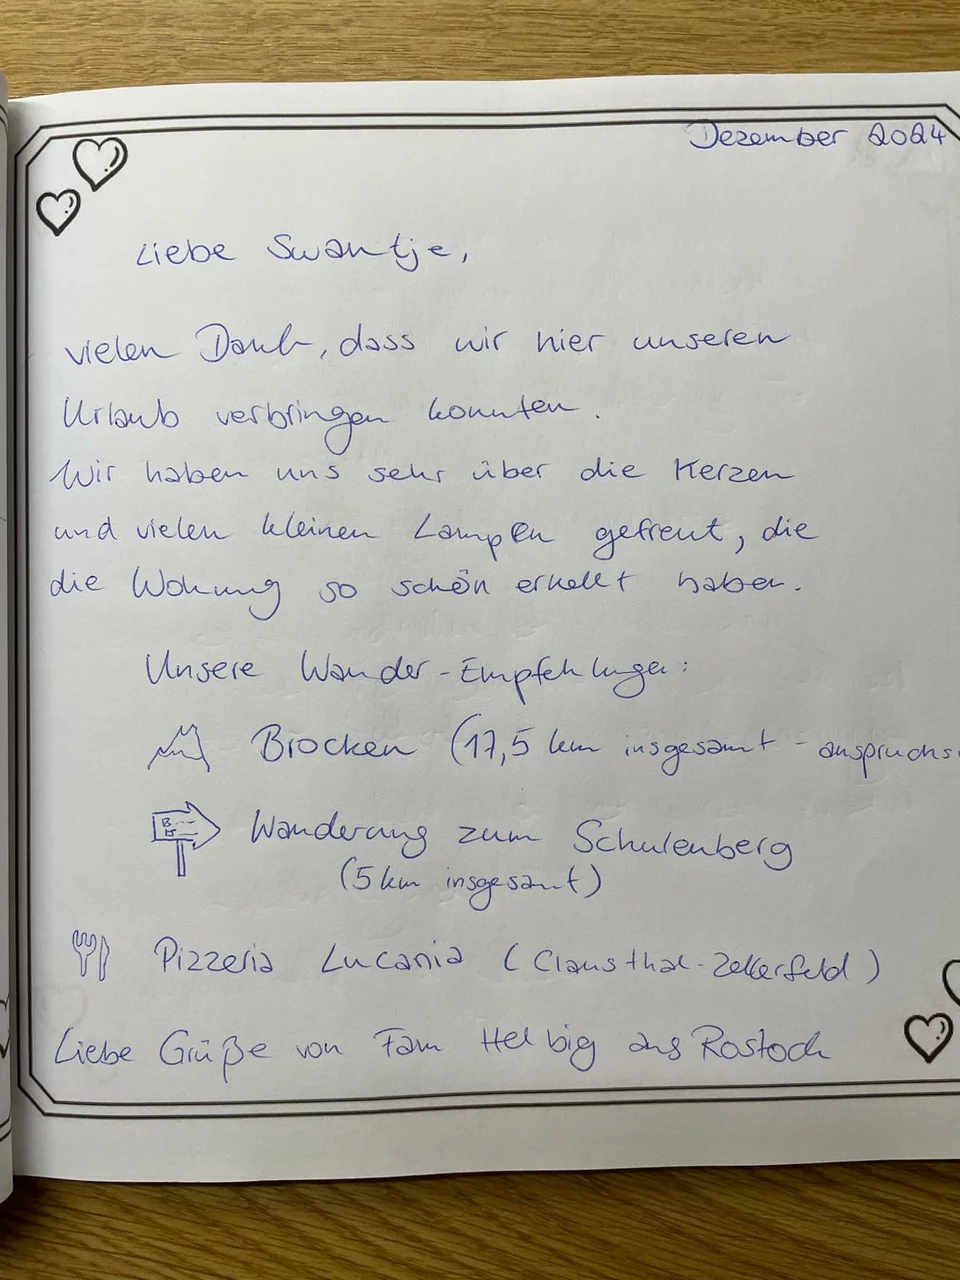 Dezember 2024
Liebe Swantje,
vielen Dank, dass wir hier unseren
Urlaub verbringen konnten.
Wir haben uns sehr über die Kerzen
und vielen kleinen Lampen gefreut, die
die Wohnung so schön erhellt haben.
Unsere Wander-Empfehlungen:
Brocken (17,5 km insgesamt - anspruchs
Wanderung zum Schulenberg
(5 km insgesamt)
Pizzeria Lucania (Clausthal-Zellerfeld)
Liebe Grüße von Fam Helbig aus Rostock